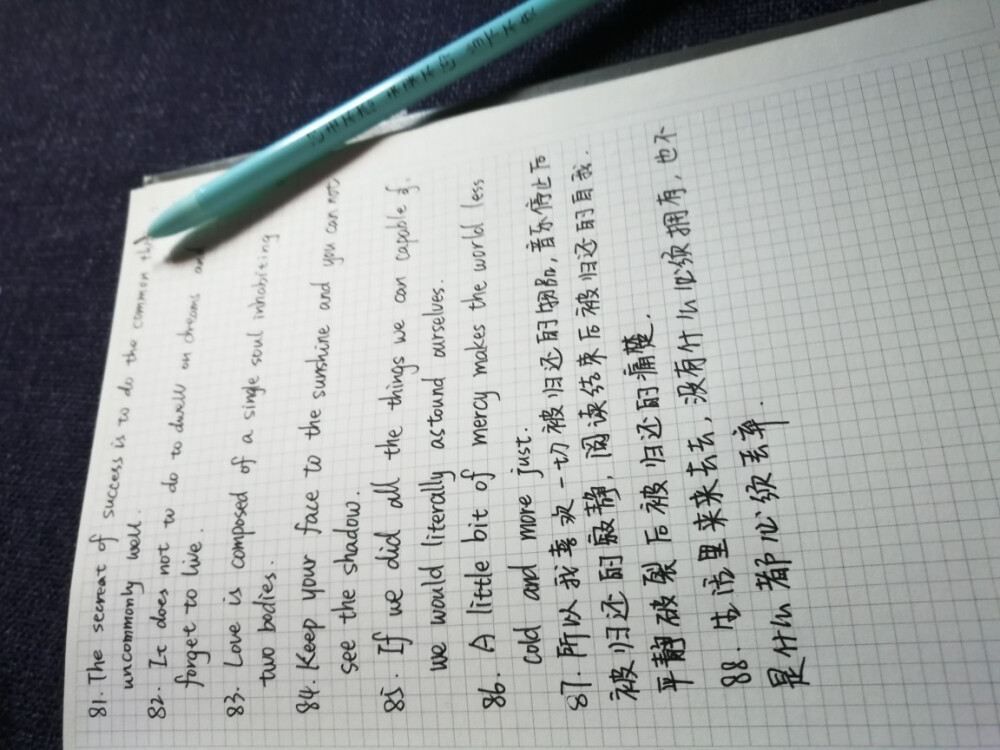 81. The secreat of success is to do the common
uncommonly well.
82. It does not to do to dwell on dreams and
forget to live.
83. Love is composed of a single soul inhabiting
two bodies.
84. Keep your face to the sunshine and you can not
see the shadow.
85. If we did all the things we can capable of.
we would literally astound ourselves.
86. A little bit of mercy makes the world less
cold and more just.
87. 所以我喜欢一切被归还的物品,音乐停止后
被归还的寂静,阅读结束后被归还的自我.
平静破裂后被归还的痛楚.
88. 生活里来来去去,没有什么必须拥有,也不
是什么都必须丢弃.